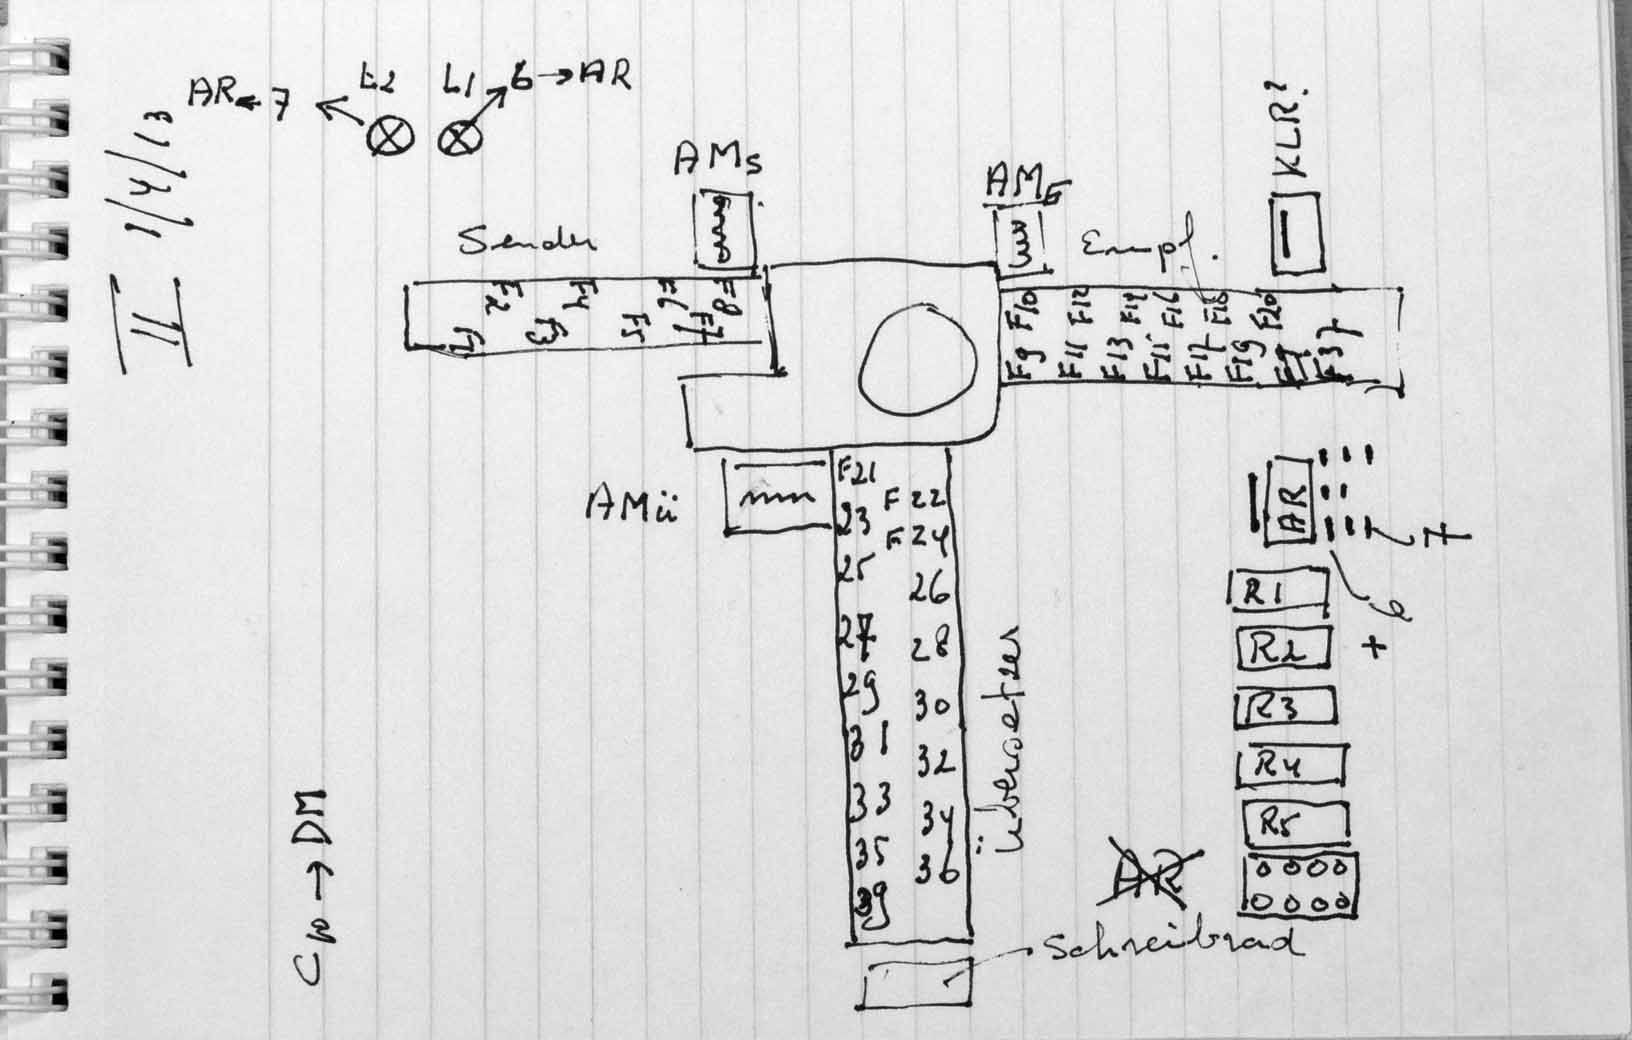 II 1/4/13
AR ← 7 ← L2
L1 → 6 → AR
AMs
AME
KLR?
Sender
Empf.
F2 F4 F6 F8
F1 F3 F5 F7
F10 F12 F14 F16 F18 F20
F9 F11 F13 F15 F17 F19 F37
AMü
F21
F22
23
F24
25
26
27
28
29
30
31
32
33
34
35
36
39
Übersetzer
AR
7
6
+
R1
R2
R3
R4
R5
AR
Schreibrad
CW → DM